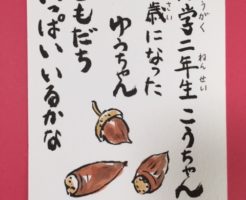 学二年生 こうちゃん
歳になった
ゆうちゃん
ともだち
っぱい いるかな